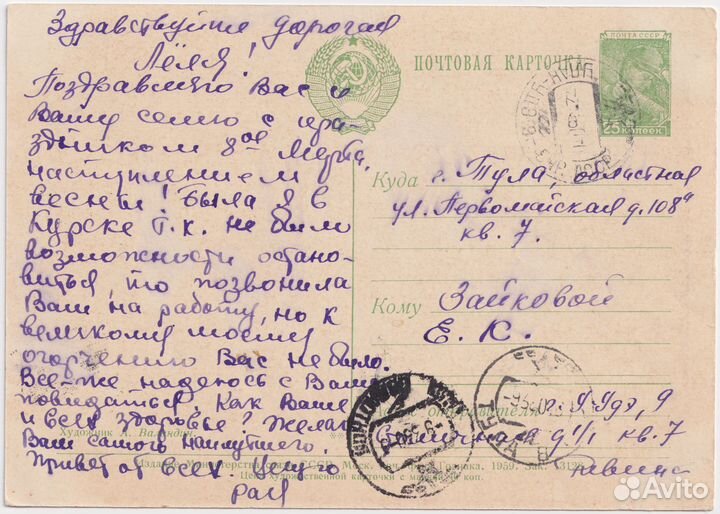 Здравствуйте дорогая
Лёля!
Поздравляю Вас и
Вашу семью с пра-
здником 8ое Марта,
наступлением
весны! Была я в
Курске т.к. не было
возможности остано-
виться, то позвонила
Вам на работу, но к
великому моему
огорчению Вас не было.
Всё-же надеюсь с Вами
повидаться. Как Ваше
и всех здоровье? Желаю
Вам самого наилучшего
Привет от всех. Целую
Рая
ПОЧТОВАЯ КАРТОЧКА
ПОЧТА СССР
25 КОПЕЕК
Куда г. Тула, областная
ул. Первомайская д. 108а
кв. 7.
Кому Зайковой
Е. К.
г. Улан-Удэ, 9
д. 1/1 кв. 7
Художник А.
Издание Министерства связи СССР. Моск. печ. ф-ка Гознака. 1959. Зак. 3128.
Цена художественной карточки с маркой коп.
Avito